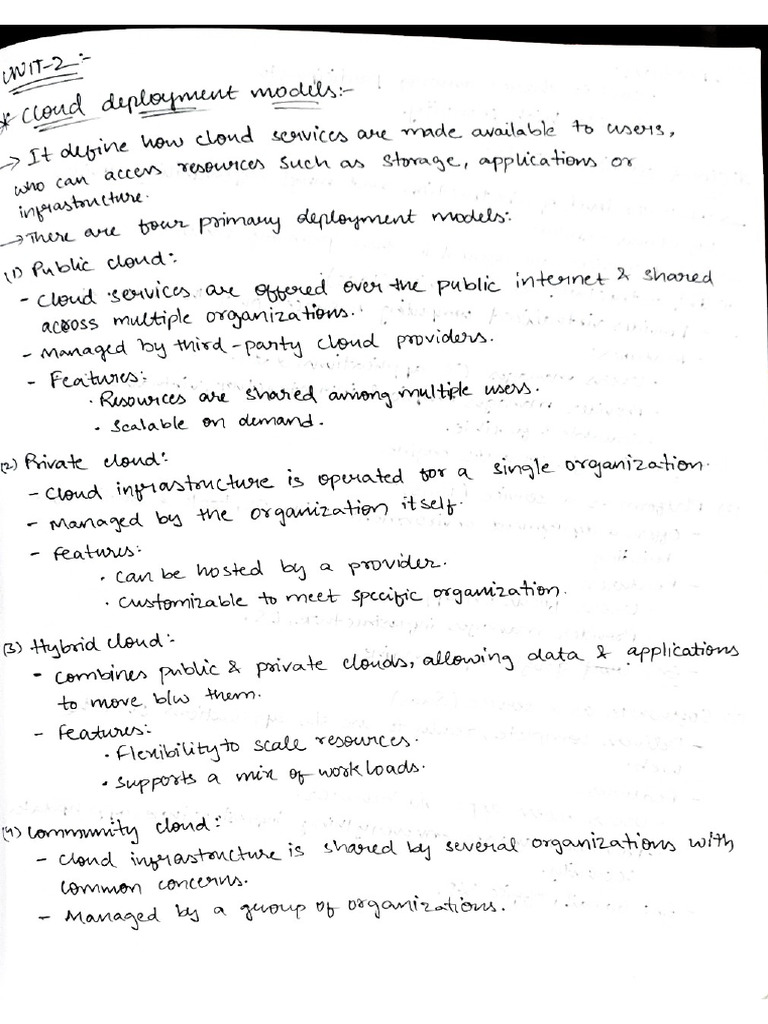 UNIT-2:-
* Cloud deployment models:-
→ It define how cloud services are made available to users,
who can access resources such as storage, applications or
infrastructure.
→ There are four primary deployment models:
(1) Public cloud:
- Cloud services are offered over the public internet & shared
across multiple organizations.
- Managed by third-party cloud providers.
- Features:
• Resources are shared among multiple users.
• Scalable on demand.
(2) Private cloud:
- Cloud infrastructure is operated for a single organization.
- Managed by the organization itself.
- Features:
• Can be hosted by a provider.
• Customizable to meet specific organization.
(3) Hybrid cloud:-
- Combines public & private clouds, allowing data & applications
to move b/w them.
- Features:
• Flexibility to scale resources.
• Supports a mix of workloads.
(4) Community cloud:
- Cloud infrastructure is shared by several organizations with
common concerns.
- Managed by a group of organizations.